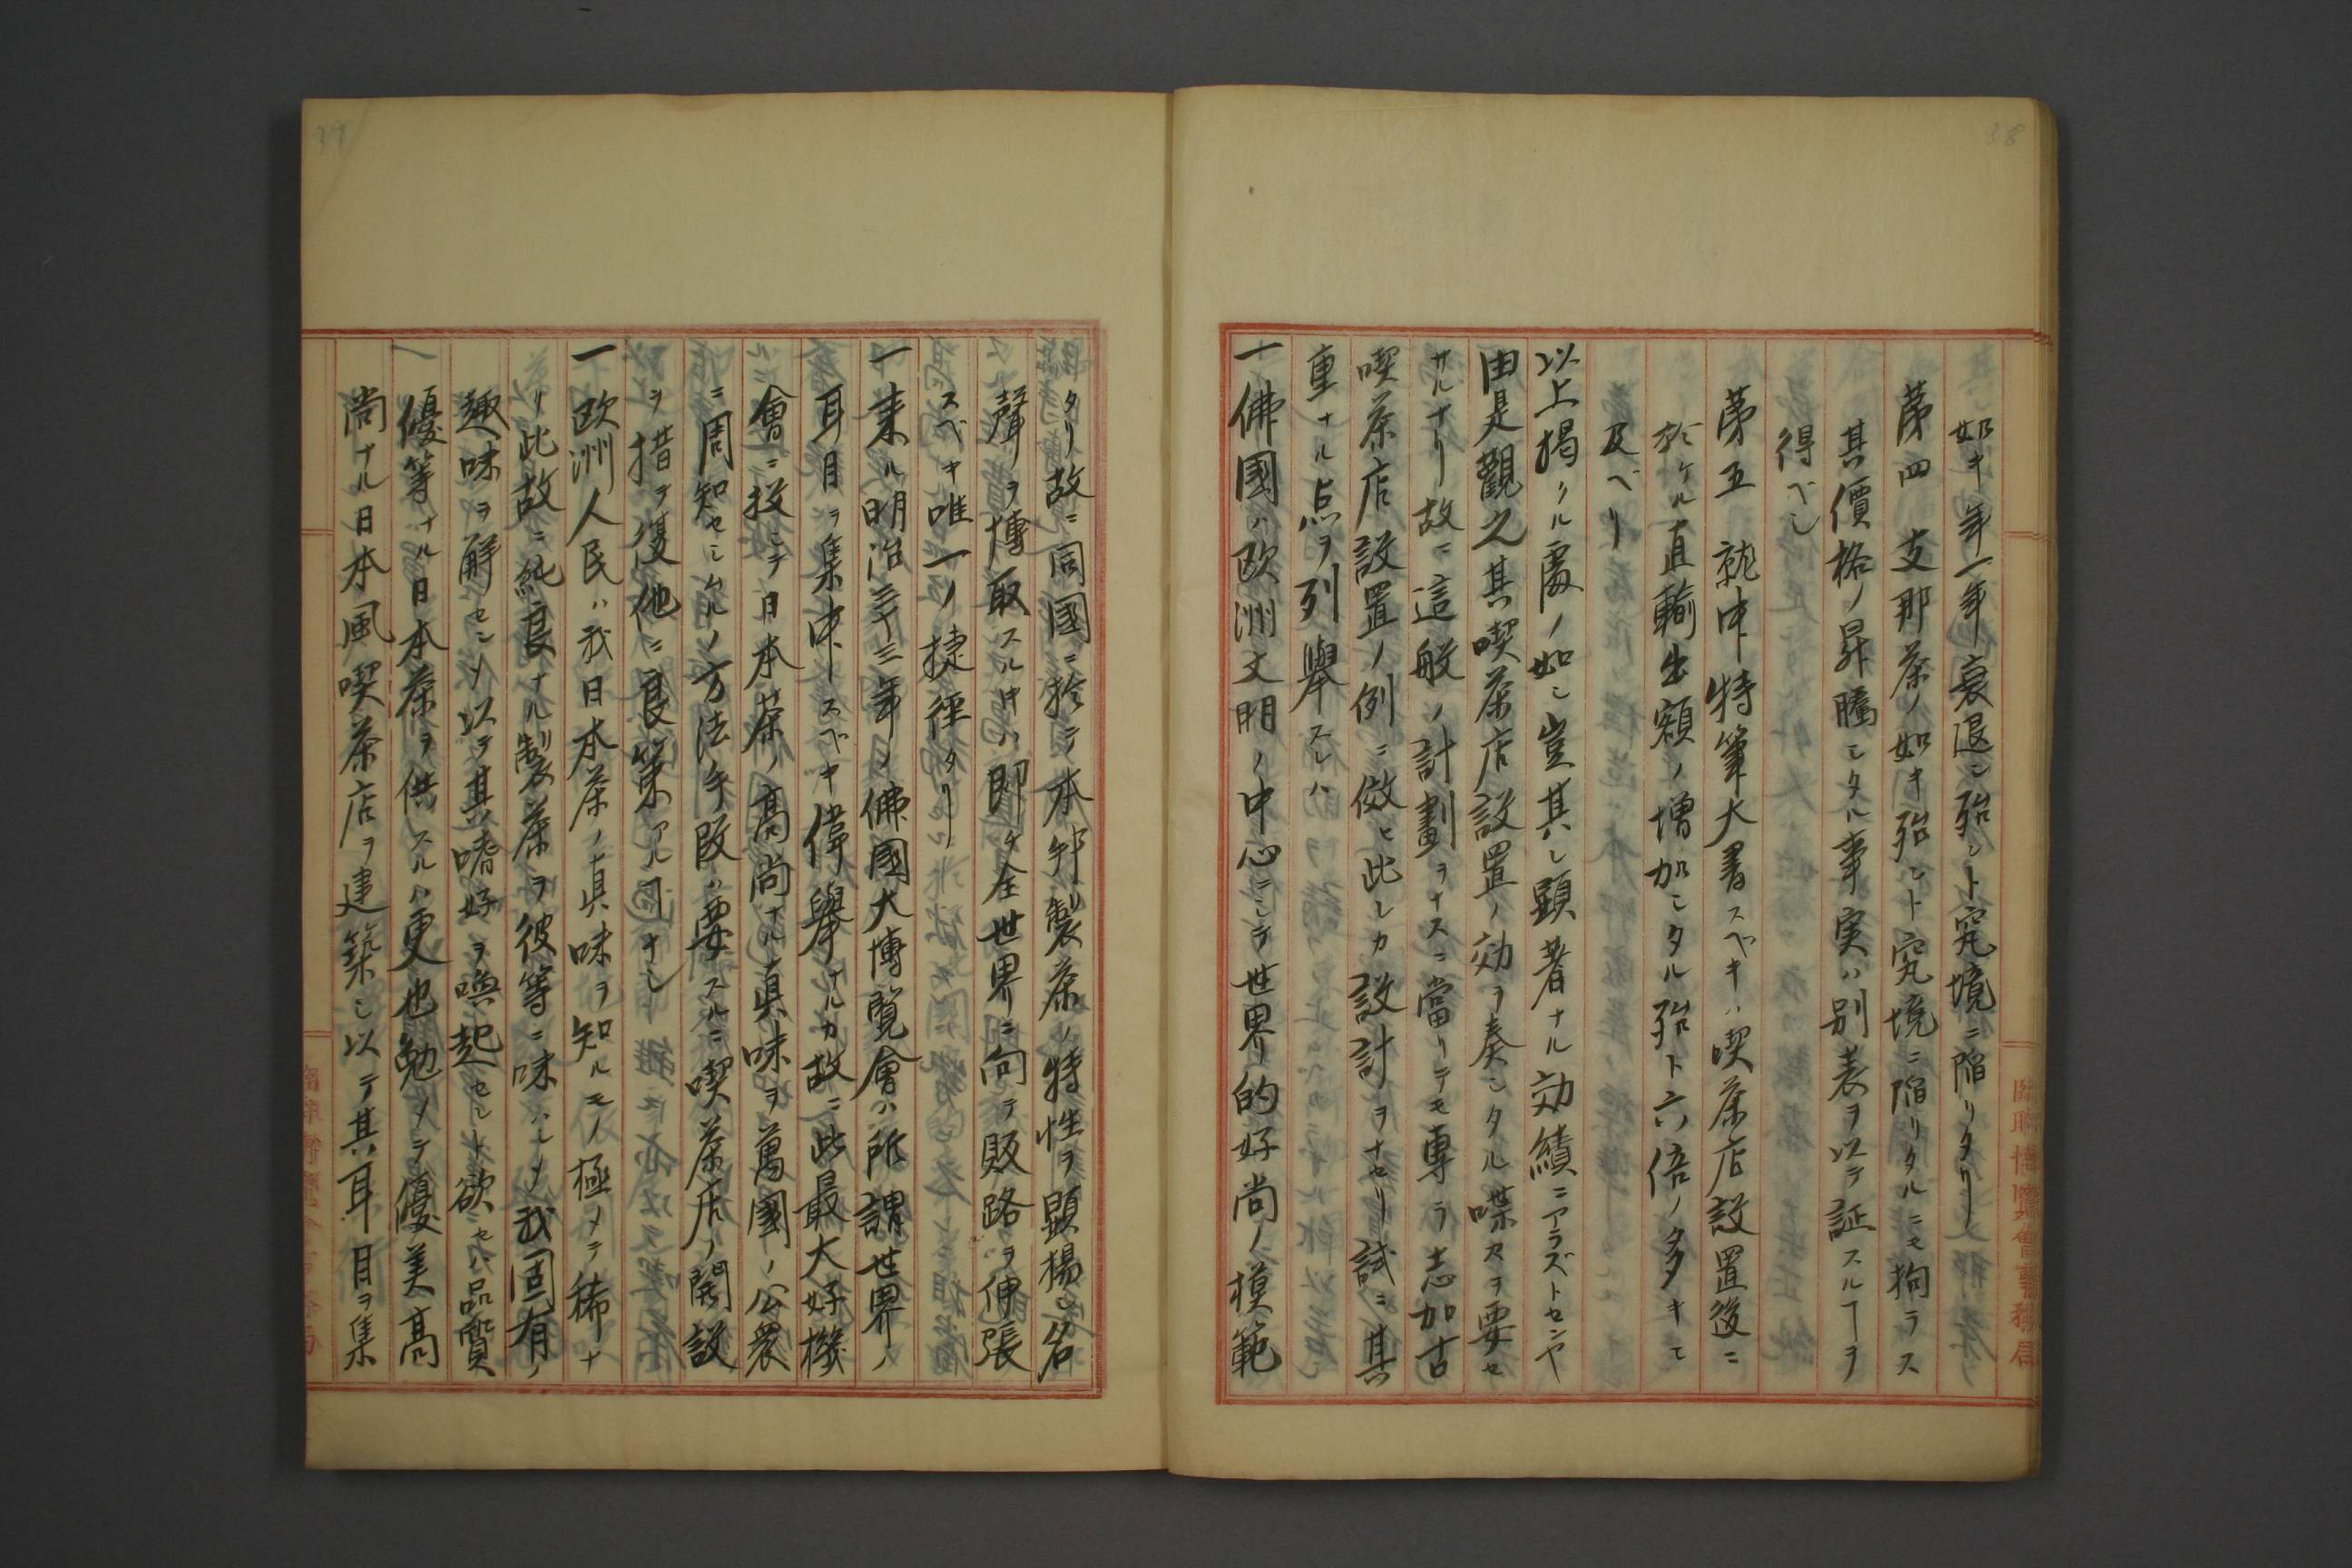 38
如キ年一年衰退シ殆ント究境ニ陥リタリ
茅四 支那茶ノ如キ殆ント究境ニ陥リタルニモ拘ラス
其價格ノ昇騰シタル事実ハ別表ヲ以テ証スルヿヲ
得ベシ
茅五 就中特筆大書スベキハ喫茶店設置後ニ
於ケル直輸出額ノ増加シタル殆ト六倍ノ多キモ
及ベリ
以上掲クル處ノ如シ豈其レ顕著ナル効績ニアラズトセンヤ
由是觀之其喫茶店設置ノ効ヲ奏シタル喋々ヲ要セ
サルナリ故ニ這般ノ計劃ヲナスニ當リテモ専ラ志加古
喫茶店設置ノ例ニ倣ヒ此レカ設計ヲナセリ試ニ其
重ナル点ヲ列舉スレハ
一佛國ハ欧洲文明ノ中心ニシテ世界的好尚ノ模範
臨時博覽會事務局
39
タリ故ニ同國ニ於テ本邦製茶ノ特性ヲ顕揚シ名
聲ヲ博取スル中ハ即チ全世界ニ向テ販路ヲ伸張
スベキ唯一ノ捷徑タリ
一来ル明治三十三年ノ佛國大博覧會ハ所謂世界ノ
耳目ヲ集中スベキ偉舉ナルカ故ニ此最大好機
會ニ投シテ日本茶ノ高尚ナル真味ヲ萬國ノ公衆
ニ周知セシムルノ方法手段ハ要スルニ喫茶店ノ開設
ヲ措テ復他ニ良策アル可ナシ
一欧洲人民ハ我日本茶ノ真味ヲ知ルモノ極メテ稀ナ
リ此故ニ純良ナル製茶ヲ彼等ニ味ハシメ我固有ノ
趣味ヲ解セシメ以テ其嗜好ヲ喚起セント欲セハ品質
優等ナル日本茶ヲ供スルハ更也勉メテ優美高
尚ナル日本風喫茶店ヲ建築シ以テ其耳目ヲ集